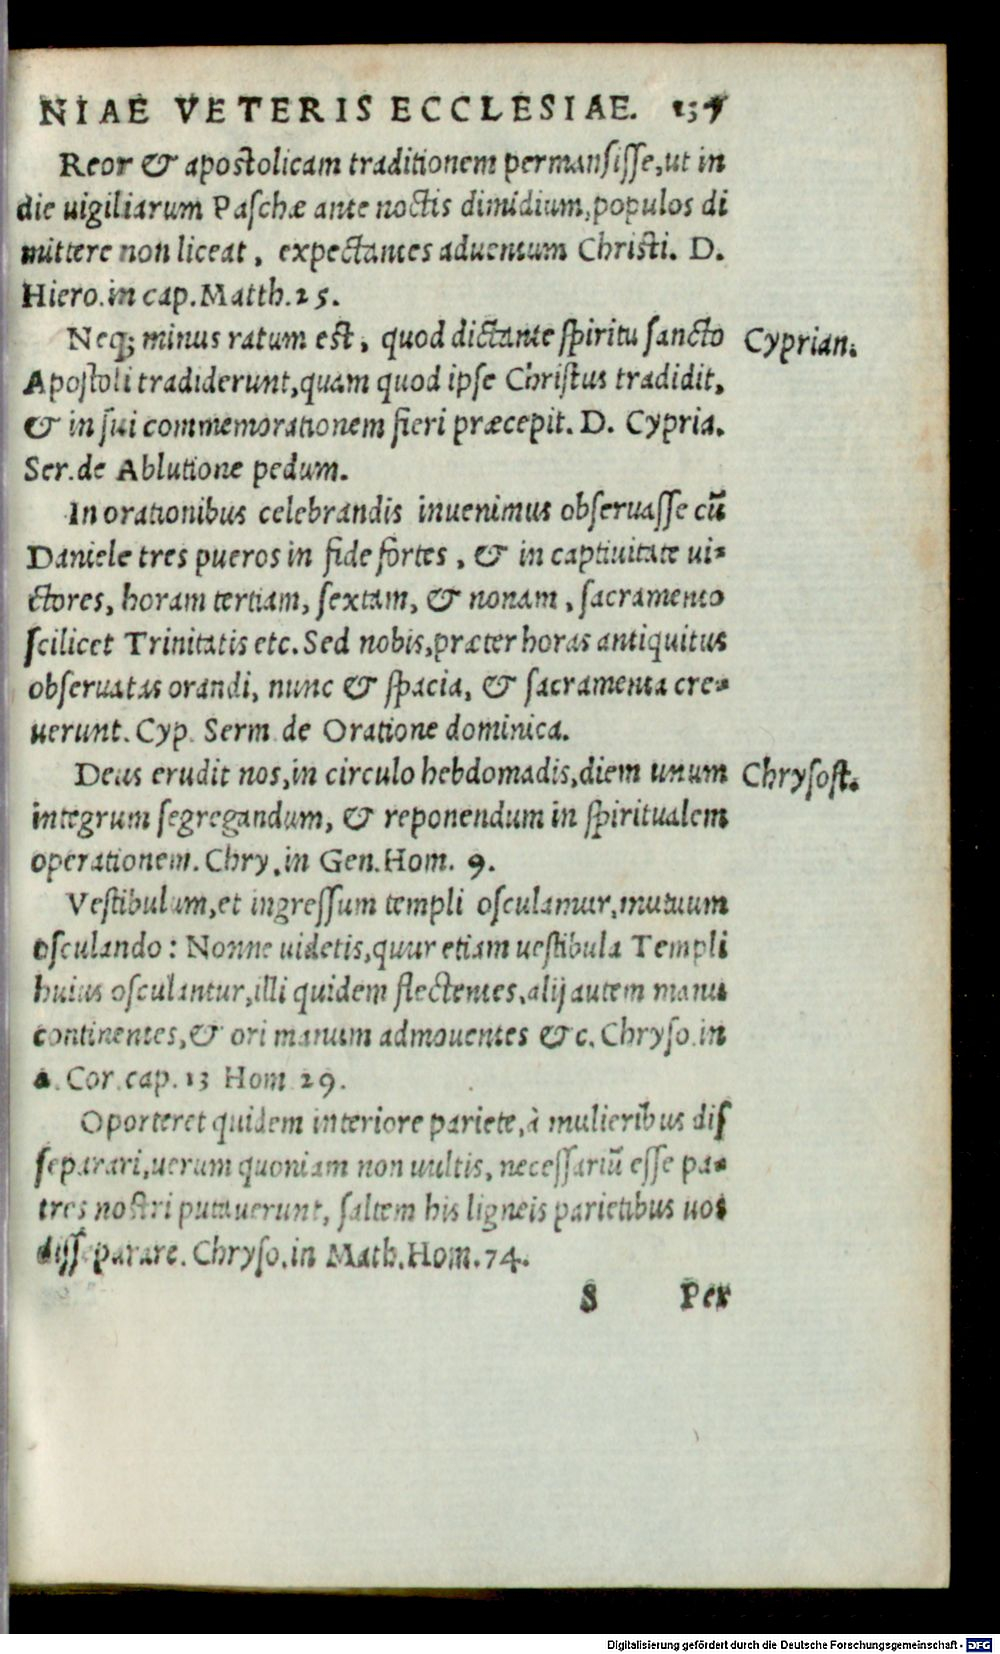 NIAE VETERIS ECCLESIAE. 137
Reor & apostolicam traditionem permansisse, ut in
die uigiliarum Paschæ ante noctis dimidium, populos di
mittere non liceat, expectantes aduentum Christi. D.
Hiero. in cap. Matth. 25.
Neq; minus ratum est, quod dictante spiritu sancto Cyprian.
Apostoli tradiderunt, quam quod ipse Christus tradidit,
& in sui commemorationem fieri præcepit. D. Cypria.
Ser. de Ablutione pedum.
In orationibus celebrandis inuenimus obseruasse cū
Daniele tres pueros in fide fortes, & in captiuitate ui-
ctores, horam tertiam, sextam, & nonam, sacramento
scilicet Trinitatis etc. Sed nobis, præter horas antiquitus
obseruatas orandi, nunc & spacia, & sacramenta cre-
uerunt. Cyp. Serm. de Oratione dominica.
Deus erudit nos, in circulo hebdomadis, diem unum Chrysost.
integrum segregandum, & reponendum in spiritualem
operationem. Chry. in Gen. Hom. 9.
Vestibulum, et ingressum templi osculamur, mutuum
osculando: Nonne uidetis, quur etiam uestibula Templi
huius osculantur, illi quidem flectentes, alij autem manu
continentes, & ori manum admouentes &c. Chryso. in
Cor. cap. 13 Hom. 29.
Oporteret quidem interiore pariete, à mulieribus dis
separari, uerum quoniam non uultis, necessariū esse pa-
tres nostri putauerunt, saltem his ligneis parietibus uos
disseparare. Chryso. in Math. Hom. 74.
S Per
Digitalisierung gefördert durch die Deutsche Forschungsgemeinschaft - DFG